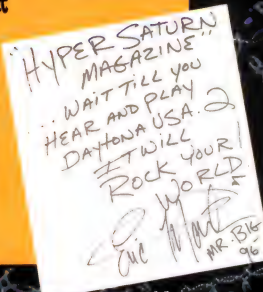 "HYPER SATURN
MAGAZINE"
... WAIT TILL YOU
HEAR AND PLAY
DAYTONA USA. 2
IT WILL
ROCK YOUR
WORLD!
Eric
MR. BIG
96